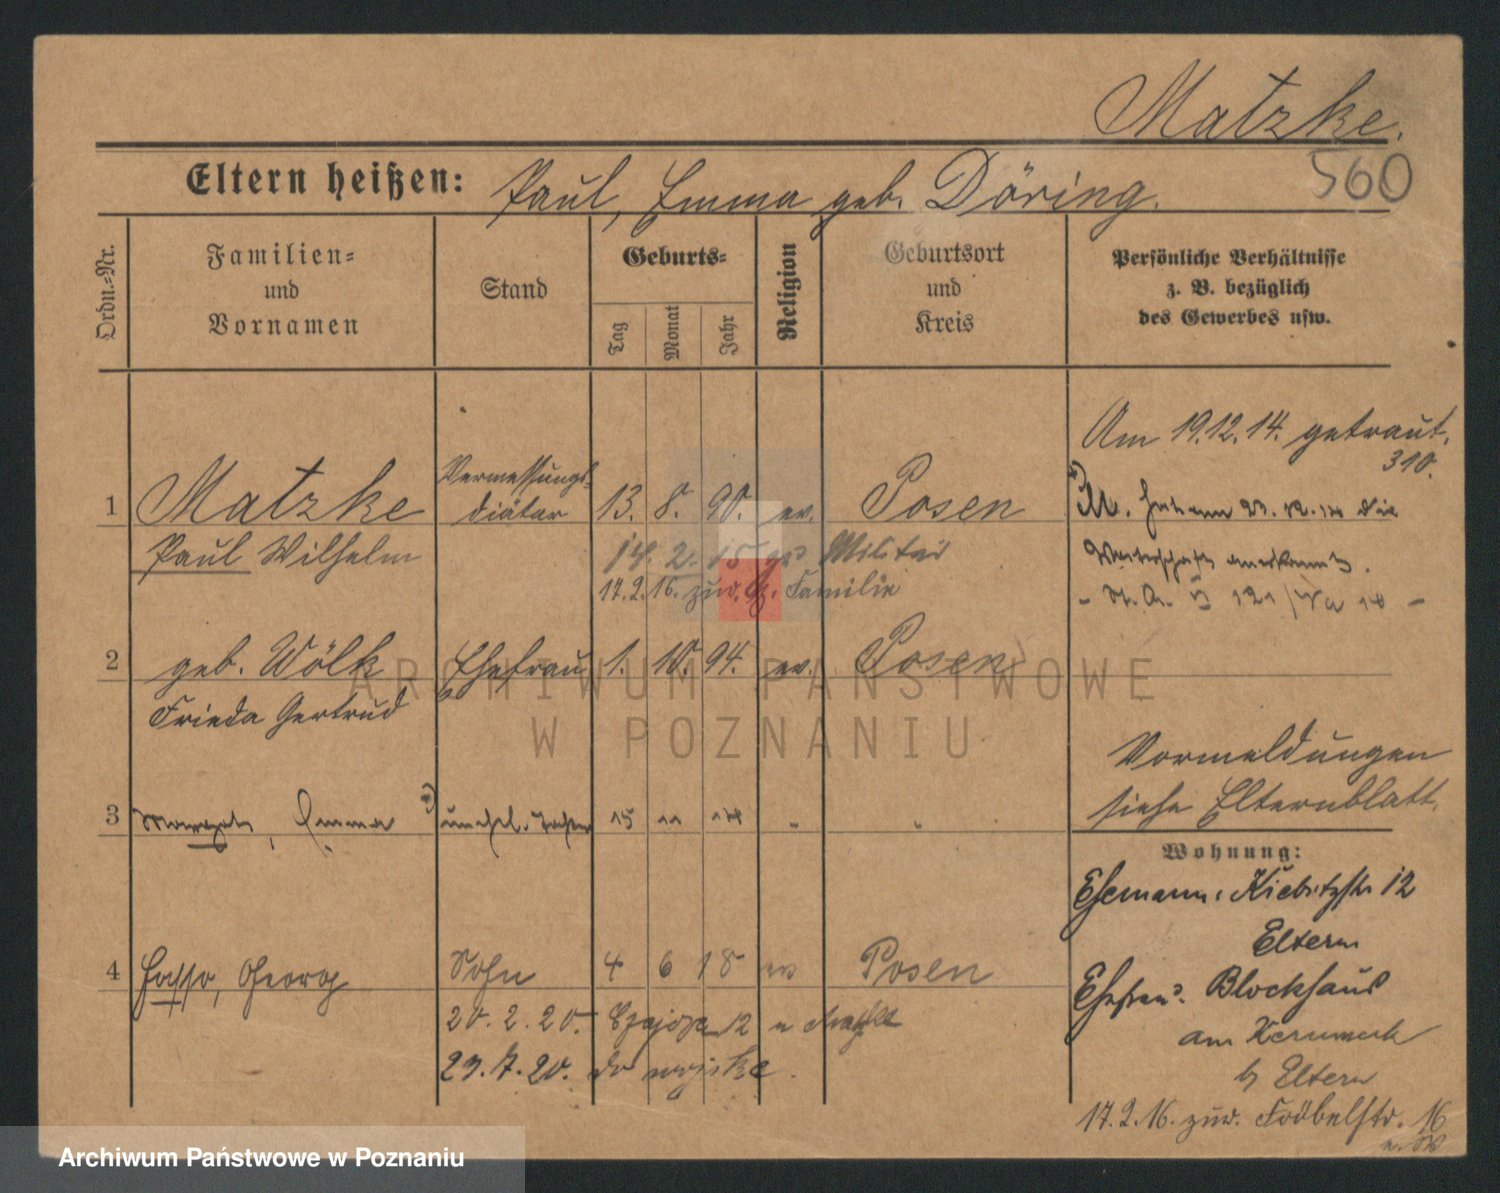 Matzke.
560
Eltern heißen: Paul, Emma geb. Döring.
Ordn.-Nr.
Familien-
und
Vornamen
Stand
Geburts-
Tag
Monat
Jahr
Religion
Geburtsort
und
Kreis
Persönliche Verhältnisse
z. B. bezüglich
des Gewerbes usw.
Am 19.12.14. getraut.
310.
1 Matzke Vermessungs-
diätar 13. 8. 90. ev. Posen
Paul Wilhelm
14. 2. 15 Militär
17.2.16. zur. Familie
M. 23.12.14 die
Vaterschaft anerkannt.
2 geb. Wölk Ehefrau 1. 10. 94. ev. Posen
Frieda Gertrud
Vormeldungen
siehe Elternblatt.
3 Margot, Emma unehel. Tochter 15 11 14 " "
Wohnung:
Ehemann: Kiebitzstr 12
Eltern
4 Hasso, Georg Sohn 4 6 18 ev Posen
Ehefrau: Blockhaus
20. 2. 20. 12
am Kernwerk
23. 7. 20. do wojska.
b/ Eltern
17.2.16. zur. Fröbelstr. 16
ARCHIWUM PAŃSTWOWE
W POZNANIU
Archiwum Państwowe w Poznaniu